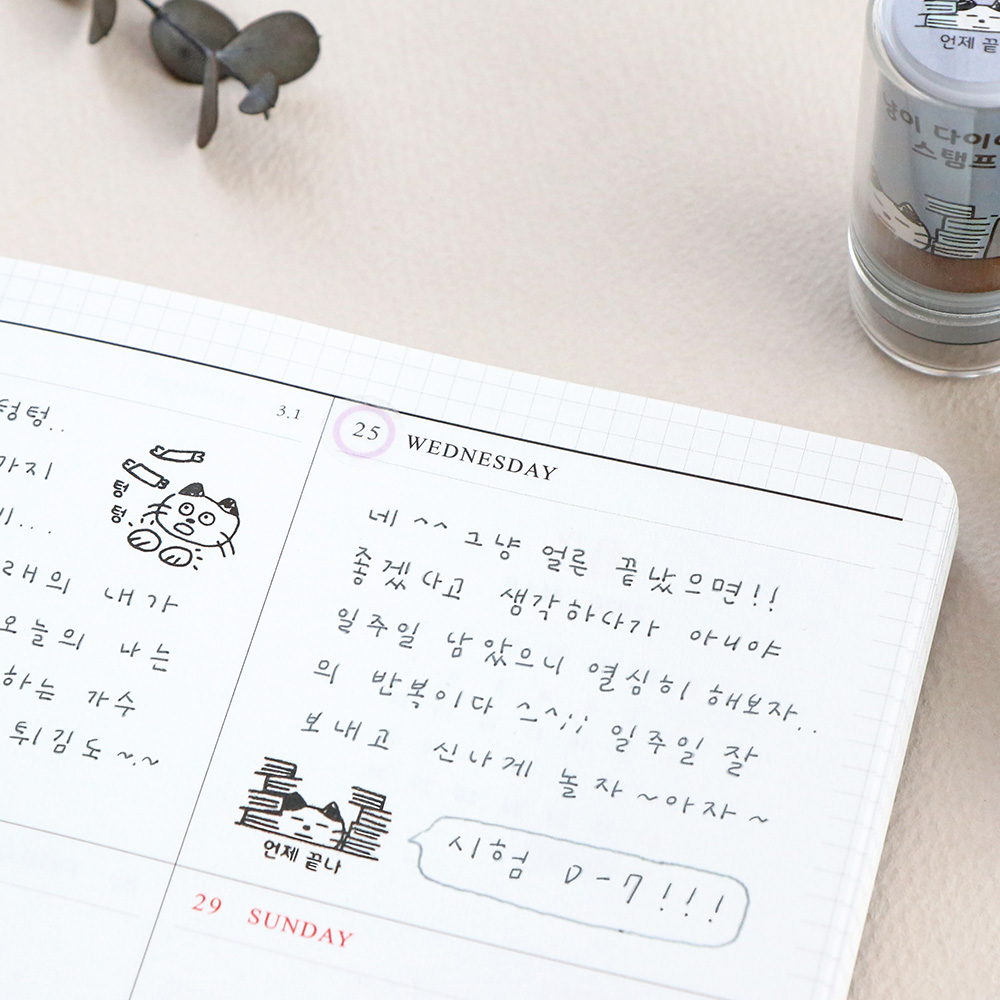 언제 끝
냥이 다이
스탬프
3.1
텅텅..
가지
텅
텅
내가
오늘의 나는
하는 가수
튀김도~.~
25 WEDNESDAY
네 ^^ 그냥 얼른 끝났으면!!
좋겠다고 생각하다가 아니야
일주일 남았으니 열심히 해보자..
의 반복이다 ^_^;; 일주일 잘
보내고 신나게 놀자~아자~
언제 끝나
시험 D-7!!!
29 SUNDAY